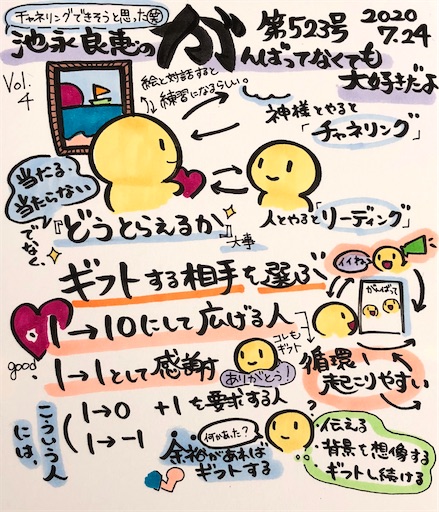 チャネリングできそうと思った(笑)
池永良恵の
がんばってなくても
大好きだよ
第523号
2020
7.24
Vol.
4
絵と対話すると
練習になるらしい。
神様とやると
「チャネリング」
当たる・
当たらない
でなく、
『どうとらえるか』
大事
人とやると「リーディング」
ギフトする相手を選ぶ
イイね
がんばって
1→10にして広げる人
good
1→1として感謝
コレも
ギフト
ありがとう!
循環
起こりやすい
こういう人
には、
1→0 +1を要求する人
1→-1
何かあった?
余裕があれば
ギフトする
伝える
背景を想像する
ギフトし続ける